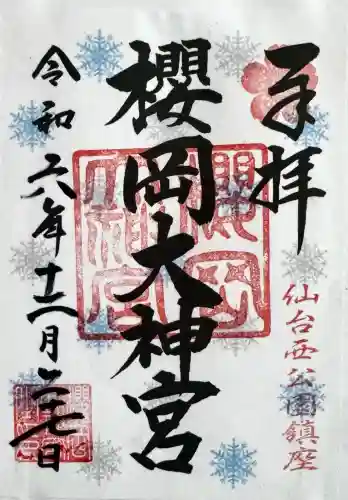 奉拝
仙台西公園鎮座
櫻岡大神宮
令和六年十二月二十七日